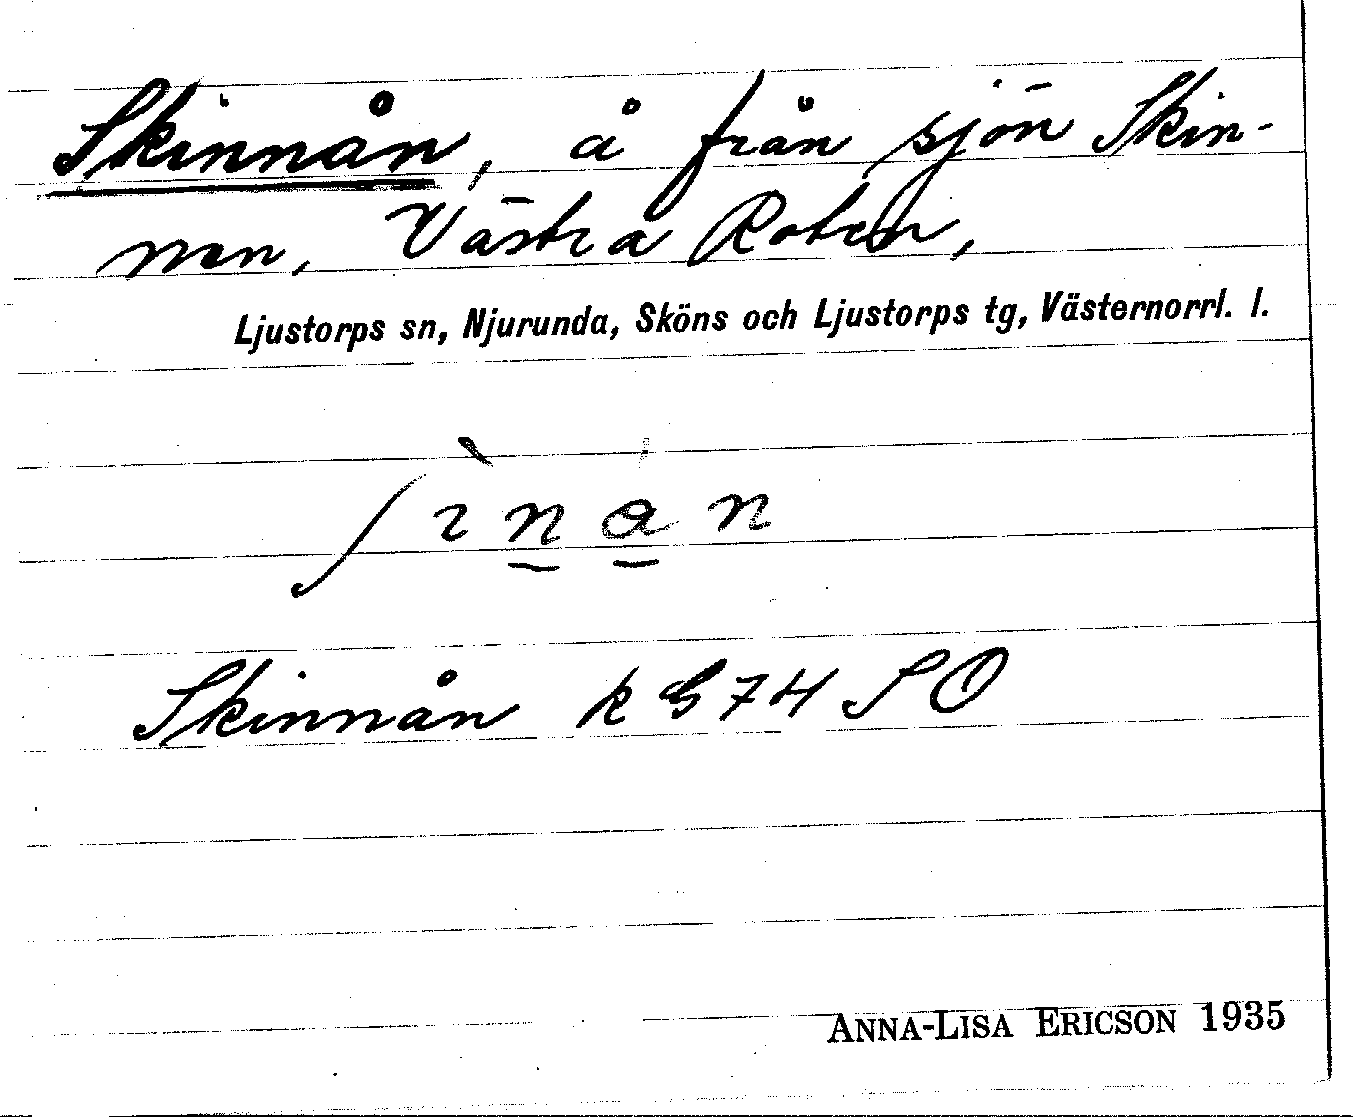 Skinnån, å från sjön Skin-
nen, Västra Roten,
Ljustorps sn, Njurunda, Sköns och Ljustorps tg, Västernorrl. l.
Skinnån k G 74 SO
ANNA-LISA ERICSON 1935